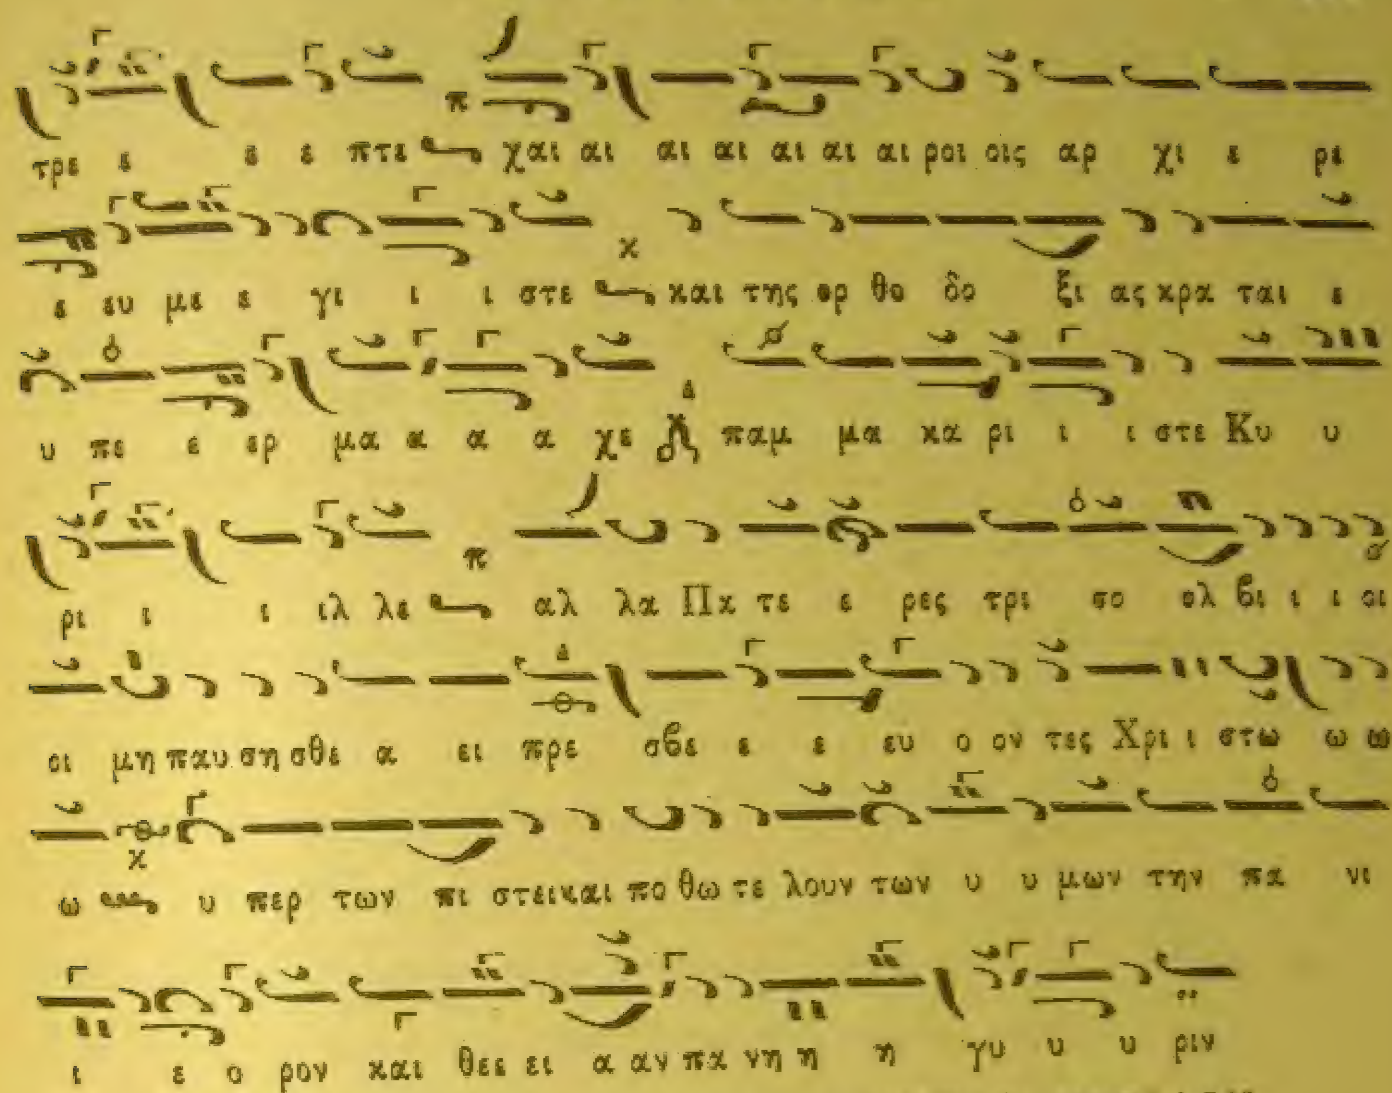 τρε ε ε ε πτε χαι αι αι αι αι αι αι ροι οις αρ χι ε ρε
ε ευ με ε γι ι ι στε και της ορ θο δο ξι ας κρα ται ε
υ πε ε ερ μα α α α χε παμ μα κα ρι ι ι στε Κυ υ
ρι ι ι ιλ λε αλ λα Πα τε ε ρες τρι σο ολ βι ι ι οι
οι μη παυ ση σθε α ει πρε σβε ε ε ευ ο ον τες Χρι ι στω ω ω
ω υ περ των πι στει και πο θω τε λουν των υ υ μων την πα νι
ι ε ο ρον και θεε ει α αν πα νη η η γυ υ υ ριν